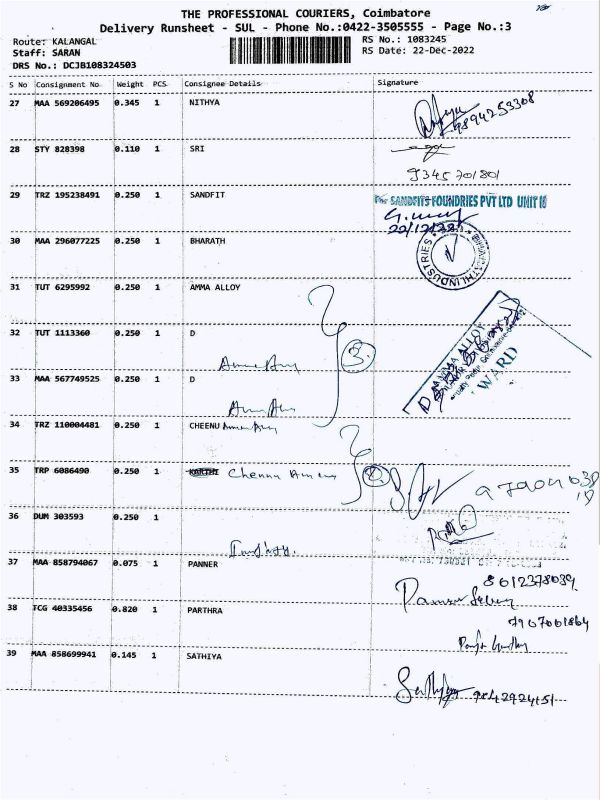 THE PROFESSIONAL COURIERS, Coimbatore
Delivery Runsheet - SUL - Phone No.:0422-3505555 - Page No.:3
Route: KALANGAL
Staff: SARAN
DRS No.: DCJB108324503
RS No.: 1083245
RS Date: 22-Dec-2022
S No Consignment No Weight PCS Consignee Details Signature
27 MAA 569206495 0.345 1 NITHYA
9894253308
28 STY 828398 0.110 1 SRI
934570180)
29 TRZ 195238491 0.250 1 SANDFIT
For SANDFITS FOUNDRIES PVT LTD UNIT II
22/12/22
30 MAA 296077225 0.250 1 BHARATH
BHARATHI INDUSTRIES
31 TUT 6295992 0.250 1 AMMA ALLOY
32 TUT 1113360 0.250 1 D
3.
AMMA ALLOY
WARD
33 MAA 567749525 0.250 1 D
34 TRZ 110004481 0.250 1 CHEENU
35 TRP 6086490 0.250 1 KARTHI Chennu
2.
36 DUM 303593 0.250 1
37 MAA 858794067 0.075 1 PANNER
8012378039
38 TCG 40335456 0.820 1 PARTHRA
7907001864
39 MAA 858699941 0.145 1 SATHIYA